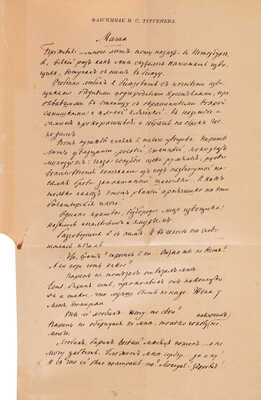 ФАКСИМИЛЕ И. С. ТУРГЕНЕВА.
Маша
много лет тому назад - в Петербурге,
всякий раз как мне случалось нанимать извоз-
чика, вступал с ним в беседу.
Особенно любил я беседовать с ночными изво-
щиками, бедными подгородными крестьянами, при-
бывавшими в столицу с окрашенными вохрой
санишками и плохой клячонкой - в надежде и
самим прокормиться и собрать на оброк гос-
подам.
Вот однажды нанял я такого извощика. Парень
лет двадцати, рослый, статный, молодец
молодцом; глаза голубые, щеки румяные; русые
волосы вьются колечками из под надвинутой на
самые брови заплатанной шапоньки. И как
только налез этот рваный армячишко на эти
богатырские плеча!
Однако красивое, безбородое лицо извощика
казалось печальным и хмурым.
Разговорился я с ним. И в голосе его слы-
шалась печаль.
Что, брат? спросил я его - Отчего ты не весел?
Али горе есть какое?
Парень не тотчас отвечал мне.
Есть, барин, есть, промолвил он наконец
Да и такое, что лучше быть не надо. Жена у
меня померла.
Ты её любил.. жену-то свою?
Парень не обернулся ко мне, только голову накло-
нил
Любил, барин. Восьмой месяц пошел... а не
могу забыть. Гложет мне сердце.. да и ну!
И с чего ей было помирать-то? Молодая! здоровая!